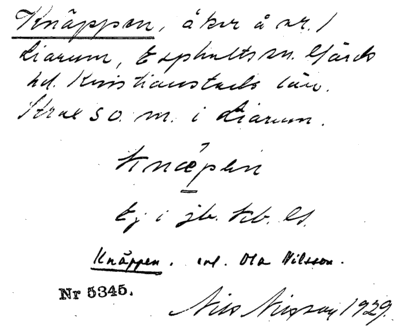 Knäppen, åker å nr. 1
Liarum, Esphults sn. Gärds
hd. Kristianstads län.
Strax SO. m. i Liarum.
knæpen
Ej i jb. kb. ls.
Knäppen. enl. Ola Nilsson.
Nr 5345.
Nils 1929.